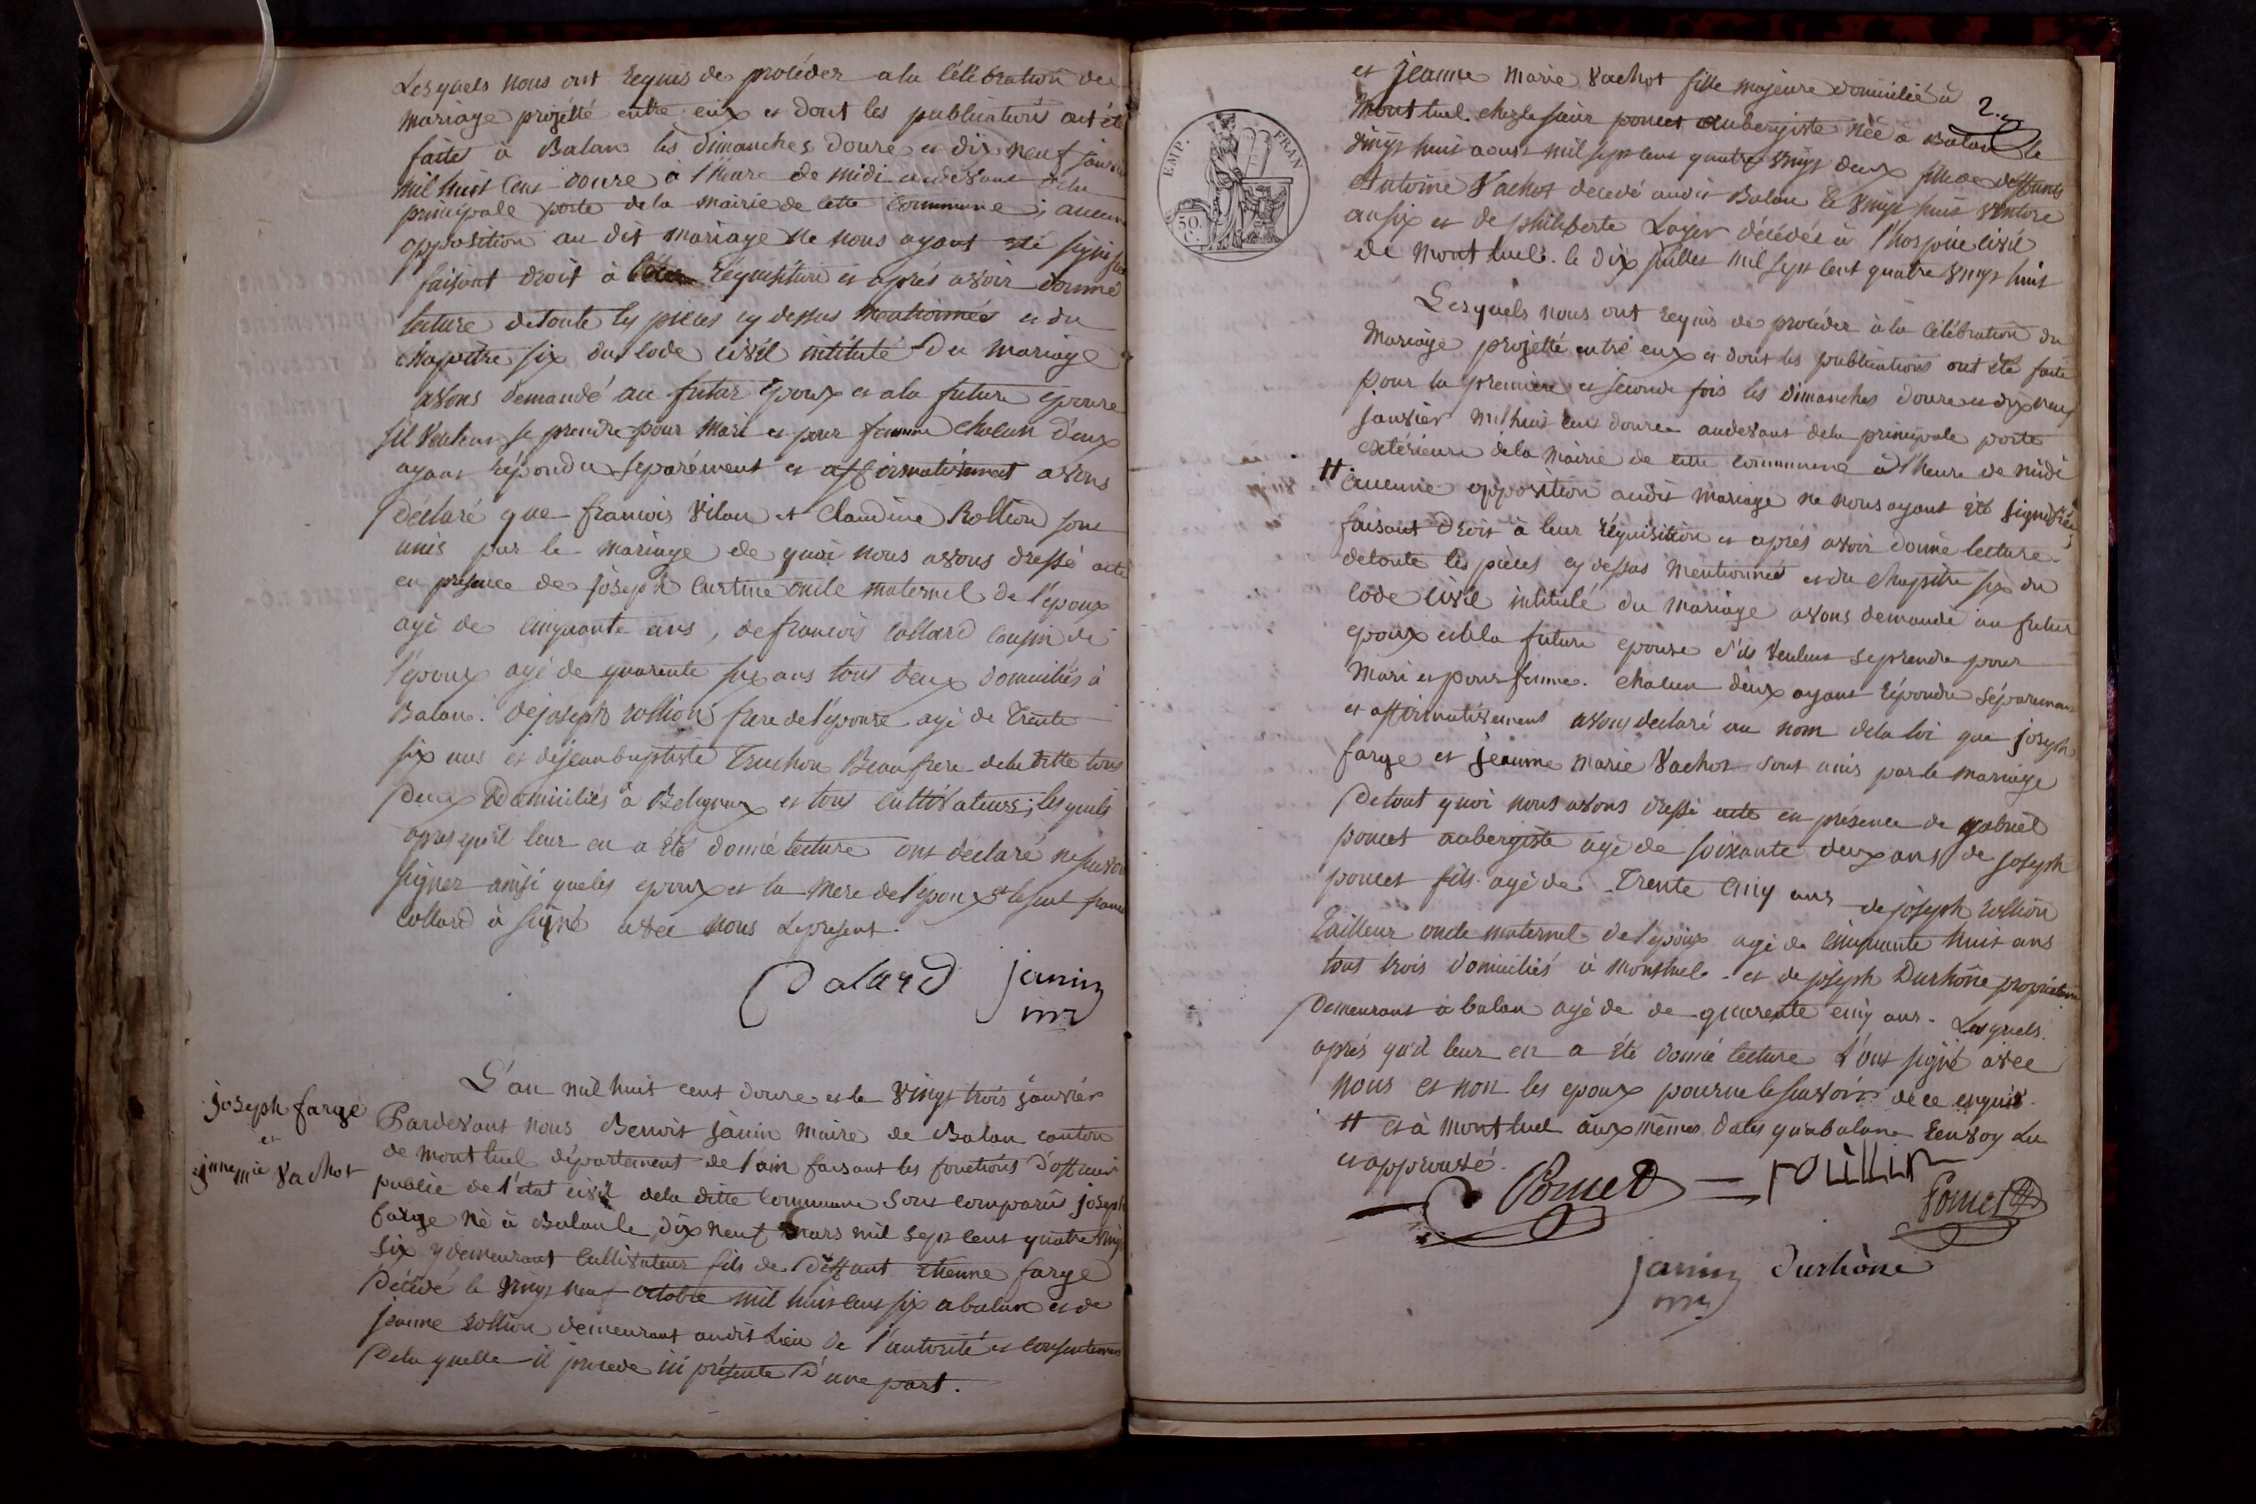 Lesquels nous ont requis de procéder a la Célébration de
mariage projetté entre eux et dont les publications ont été
faites à Balan les dimanches douze et dix neuf janvier
mil huit cent douze à l'heure de midi audevant dela
principale porte dela mairie de cette Commune; aucune
opposition au dit mariage ne nous ayant été signifié
faisant droit à réquisition et après avoir donné
lecture detoute les pieces cy dessus mentionnées et du
chapitre six du Code Civil intitulé Du mariage
avons demandé au futur Epoux et ala future epouse
s'il veulent se prendre pour mari et pour femme chacun d'eux
ayant répondu separément et affirmativement avons
déclaré que francois Vilan et Claudine Rollion sont
unis par le mariage de quoi nous avons dressé acte
en présence de joseph Curtine oncle maternel de l'époux
agé de cinquante ans, defrancois Collard cousin de
l'époux agé de quarente six ans tous deux domiciliés à
Balan. dejoseph rollion frere de l'épouse agé de Trente
six ans et dejeanbaptiste Truchon Beaufrere dela ditte tous
Deux Domiciliés à Beligneux et tous cultivateurs; lesquels
apres qu'il leur en a été donné lecture ont déclaré ne savoir
signer ainsi queles epoux et la mere de l'époux et le seul francois
Collard à signé avec nous Lepresent.
Colard janin
mre
joseph farge
et
jnne mie Vachot
L'an mil huit cent douze et le vingt trois janvier
Pardevant nous Benoit janin maire de Balan canton
de montluel département de l'ain faisant les fonctions d'officier
public de l'état civil dela ditte Commune sont comparus joseph
farge né à Balan le dix neuf mars mil sept cent quatre vingt
six y demeurant cultivateur fils de deffunt Etienne farge
Décédé le vingt neuf octobre mil huit cent six a balan et de
jeanne rollion demeurant audit Lieu de l'autorité et consentement
Dela quelle il procede ici présente D'une part.
2.
EMP. FRAN
50
C.
et jeanne marie Vachot fille majeure domiciliée à
montluel. chez le sieur poncet aubergiste née à Balan le
vingt huit aoust mil sept cent quatre vingt deux fille de deffunts
Antoine Vachot decedé audit Balan le vingt huit ventose
an six et de philiberte Loyer décédée à l'hospice civil
de montluel. le dix juillet mil sept cent quatre vingt huit
Lesquels nous ont requis de procéder à la Célébration du
mariage projetté entre eux et dont les publications ont été faite
pour la premiere et seconde fois les dimanches douze et dix neuf
janvier mil huit cent douze audevant dela principale porte
extérieure dela mairie de cette commune à l'heure de midi
# aucune opposition audit mariage ne nous ayant été signifiée;
faisant droit à leur réquisition et après avoir donné lecture
detoute les pièces cy dessus mentionnées et du chapitre six du
Code civil intitulé du mariage avons demandé au futur
epoux et à la future epouse s'ils veulent se prendre pour
mari et pour femme. chacun d'eux ayant répondu séparement
et affirmativement avons declaré au nom dela loi que joseph
farge et jeanne marie Vachot sont unis par le mariage
De tout quoi nous avons dressé acte en présence de gabriel
poncet aubergiste agé de soixante deux ans, de joseph
poncet fils agé de Trente cinq ans de joseph rollion
Tailleur oncle maternel de l'époux agé de cinquante huit ans
tous trois domiciliés à montluel. et de joseph Durhône propriétaire
demeurant à balan agé de de quarente cinq ans. Lesquels
après qu'il leur en a été donné lecture l'ont signé avec
nous et non les epoux pour ne le savoir de ce enquis.
# et à montluel aux mêmes dates qu'abalan renvoy lu
et approuvé.
Poncet rOLLIUN
Poncet
janin Durhône
mre